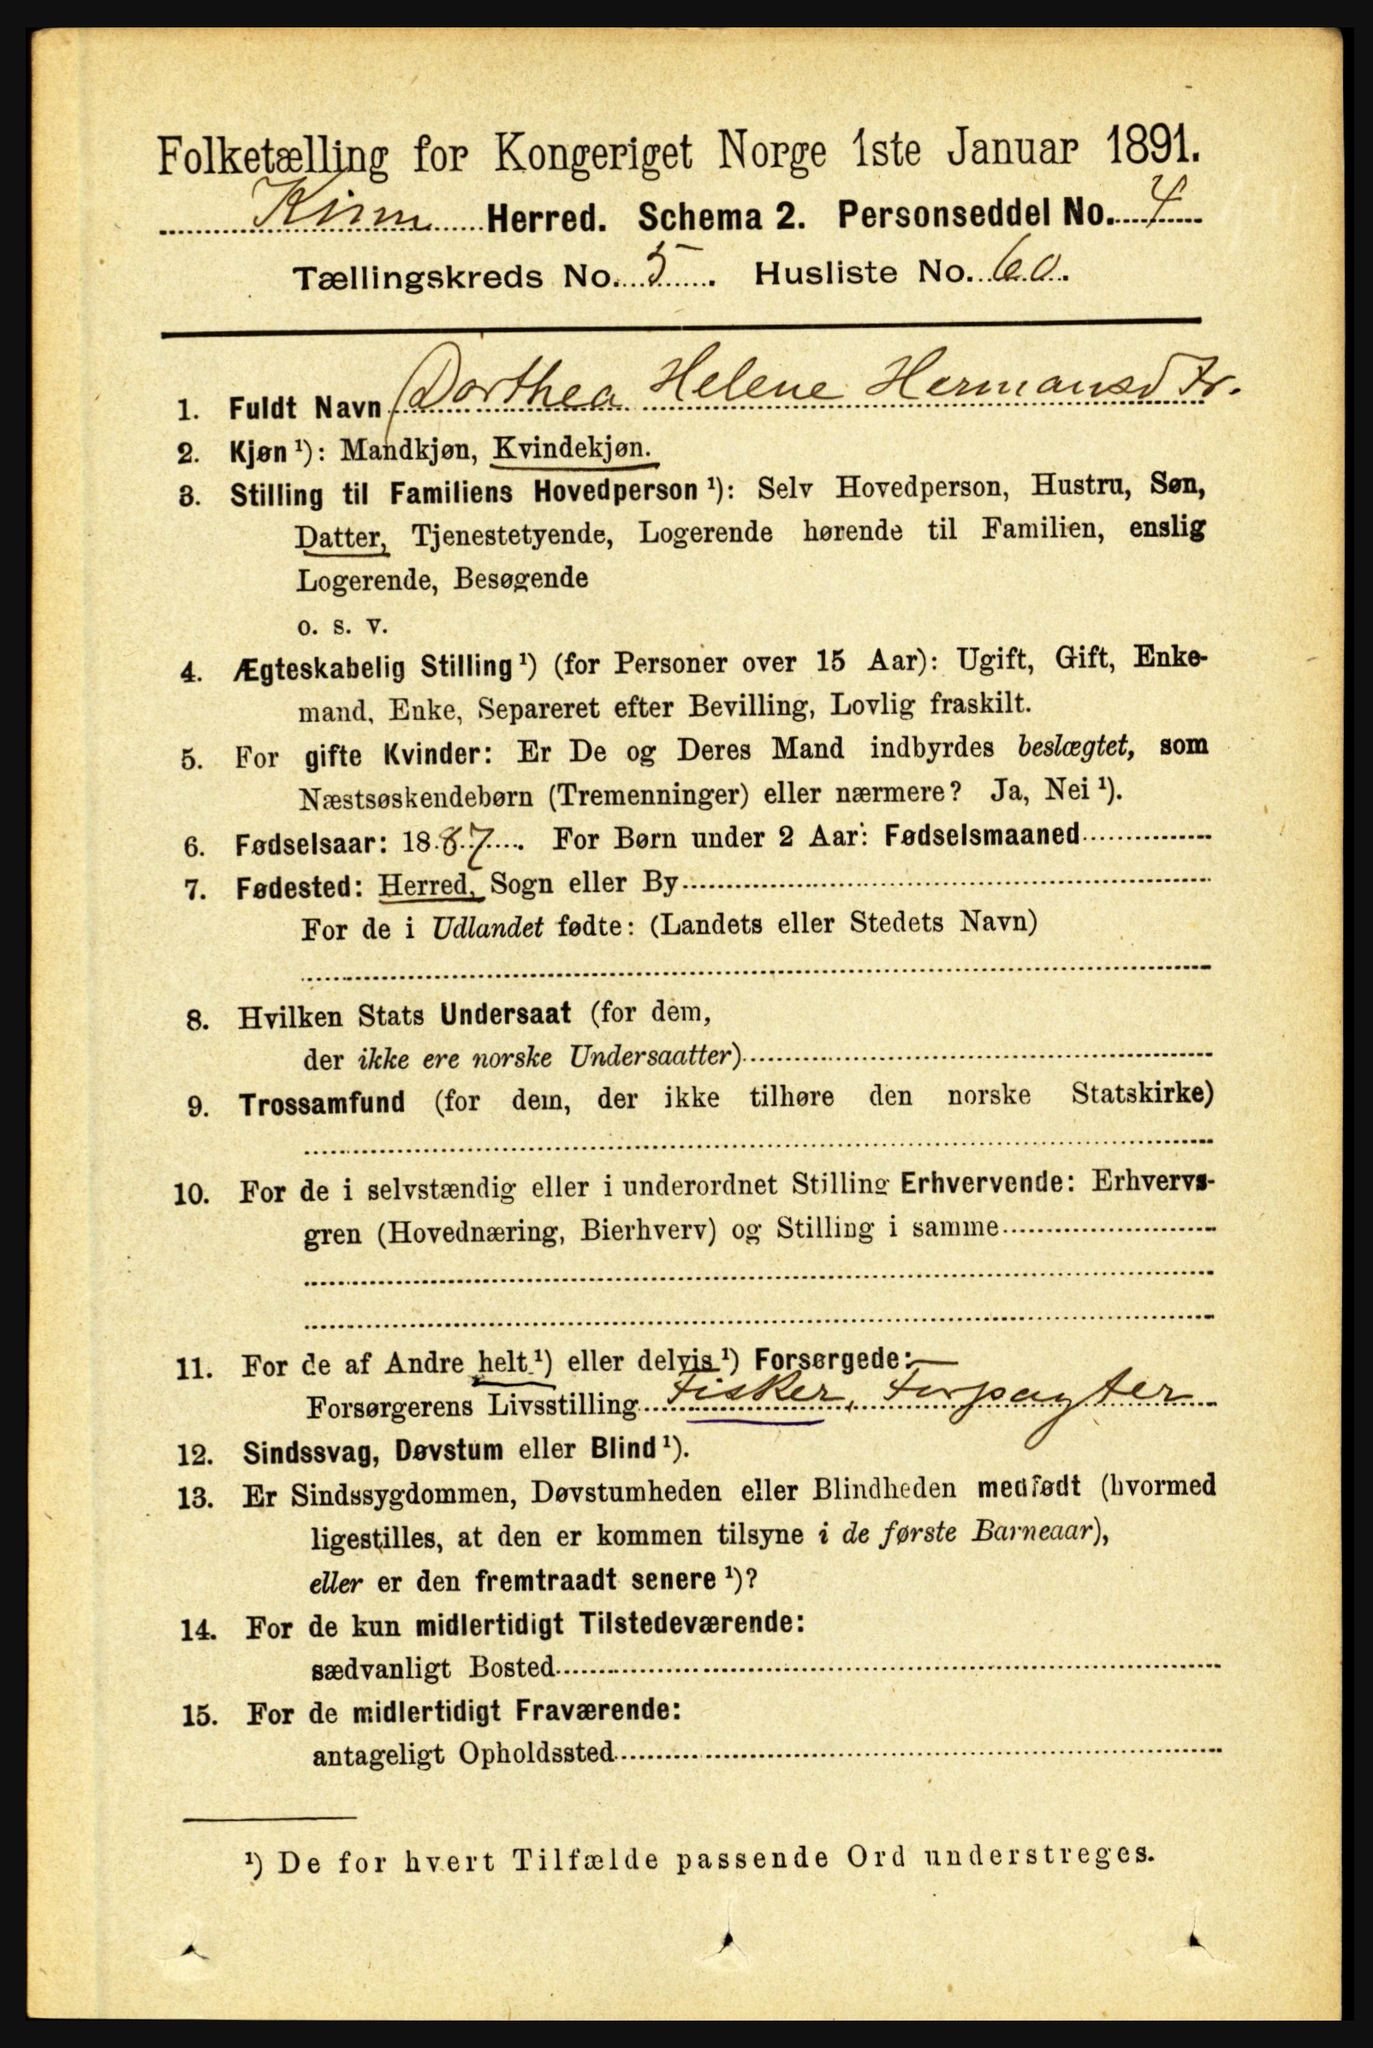 Folketælling for Kongeriget Norge 1ste Januar 1891.
Kinn Herred. Schema 2. Personseddel No. 4
Tællingskreds No. 5. Husliste No. 60.
1. Fuldt Navn Dorthea Helene Hermansdtr.
2. Kjøn ¹): Mandkjøn, Kvindekjøn.
3. Stilling til Familiens Hovedperson ¹): Selv Hovedperson, Hustru, Søn,
Datter, Tjenestetyende, Logerende hørende til Familien, enslig
Logerende, Besøgende
o. s. v.
4. Ægteskabelig Stilling ¹) (for Personer over 15 Aar): Ugift, Gift, Enke-
mand, Enke, Separeret efter Bevilling, Lovlig fraskilt.
5. For gifte Kvinder: Er De og Deres Mand indbyrdes beslægtet, som
Næstsøskendebørn (Tremenninger) eller nærmere? Ja, Nei ¹).
6. Fødselsaar: 1887. For Børn under 2 Aar: Fødselsmaaned
7. Fødested: Herred, Sogn eller By
For de i Udlandet fødte: (Landets eller Stedets Navn)
8. Hvilken Stats Undersaat (for dem,
der ikke ere norske Undersaatter)
9. Trossamfund (for dem, der ikke tilhøre den norske Statskirke)
10. For de i selvstændig eller i underordnet Stilling Erhvervende: Erhvervs-
gren (Hovednæring, Bierhverv) og Stilling i samme
11. For de af Andre helt ¹) eller delvis ¹) Forsørgede:
Forsørgerens Livsstilling Fisker, Forpagter
12. Sindssvag, Døvstum eller Blind ¹).
13. Er Sindssygdommen, Døvstumheden eller Blindheden medfødt (hvormed
ligestilles, at den er kommen tilsyne i de første Barneaar),
eller er den fremtraadt senere ¹)?
14. For de kun midlertidigt Tilstedeværende:
sædvanligt Bosted
15. For de midlertidigt Fraværende:
antageligt Opholdssted
¹) De for hvert Tilfælde passende Ord understreges.